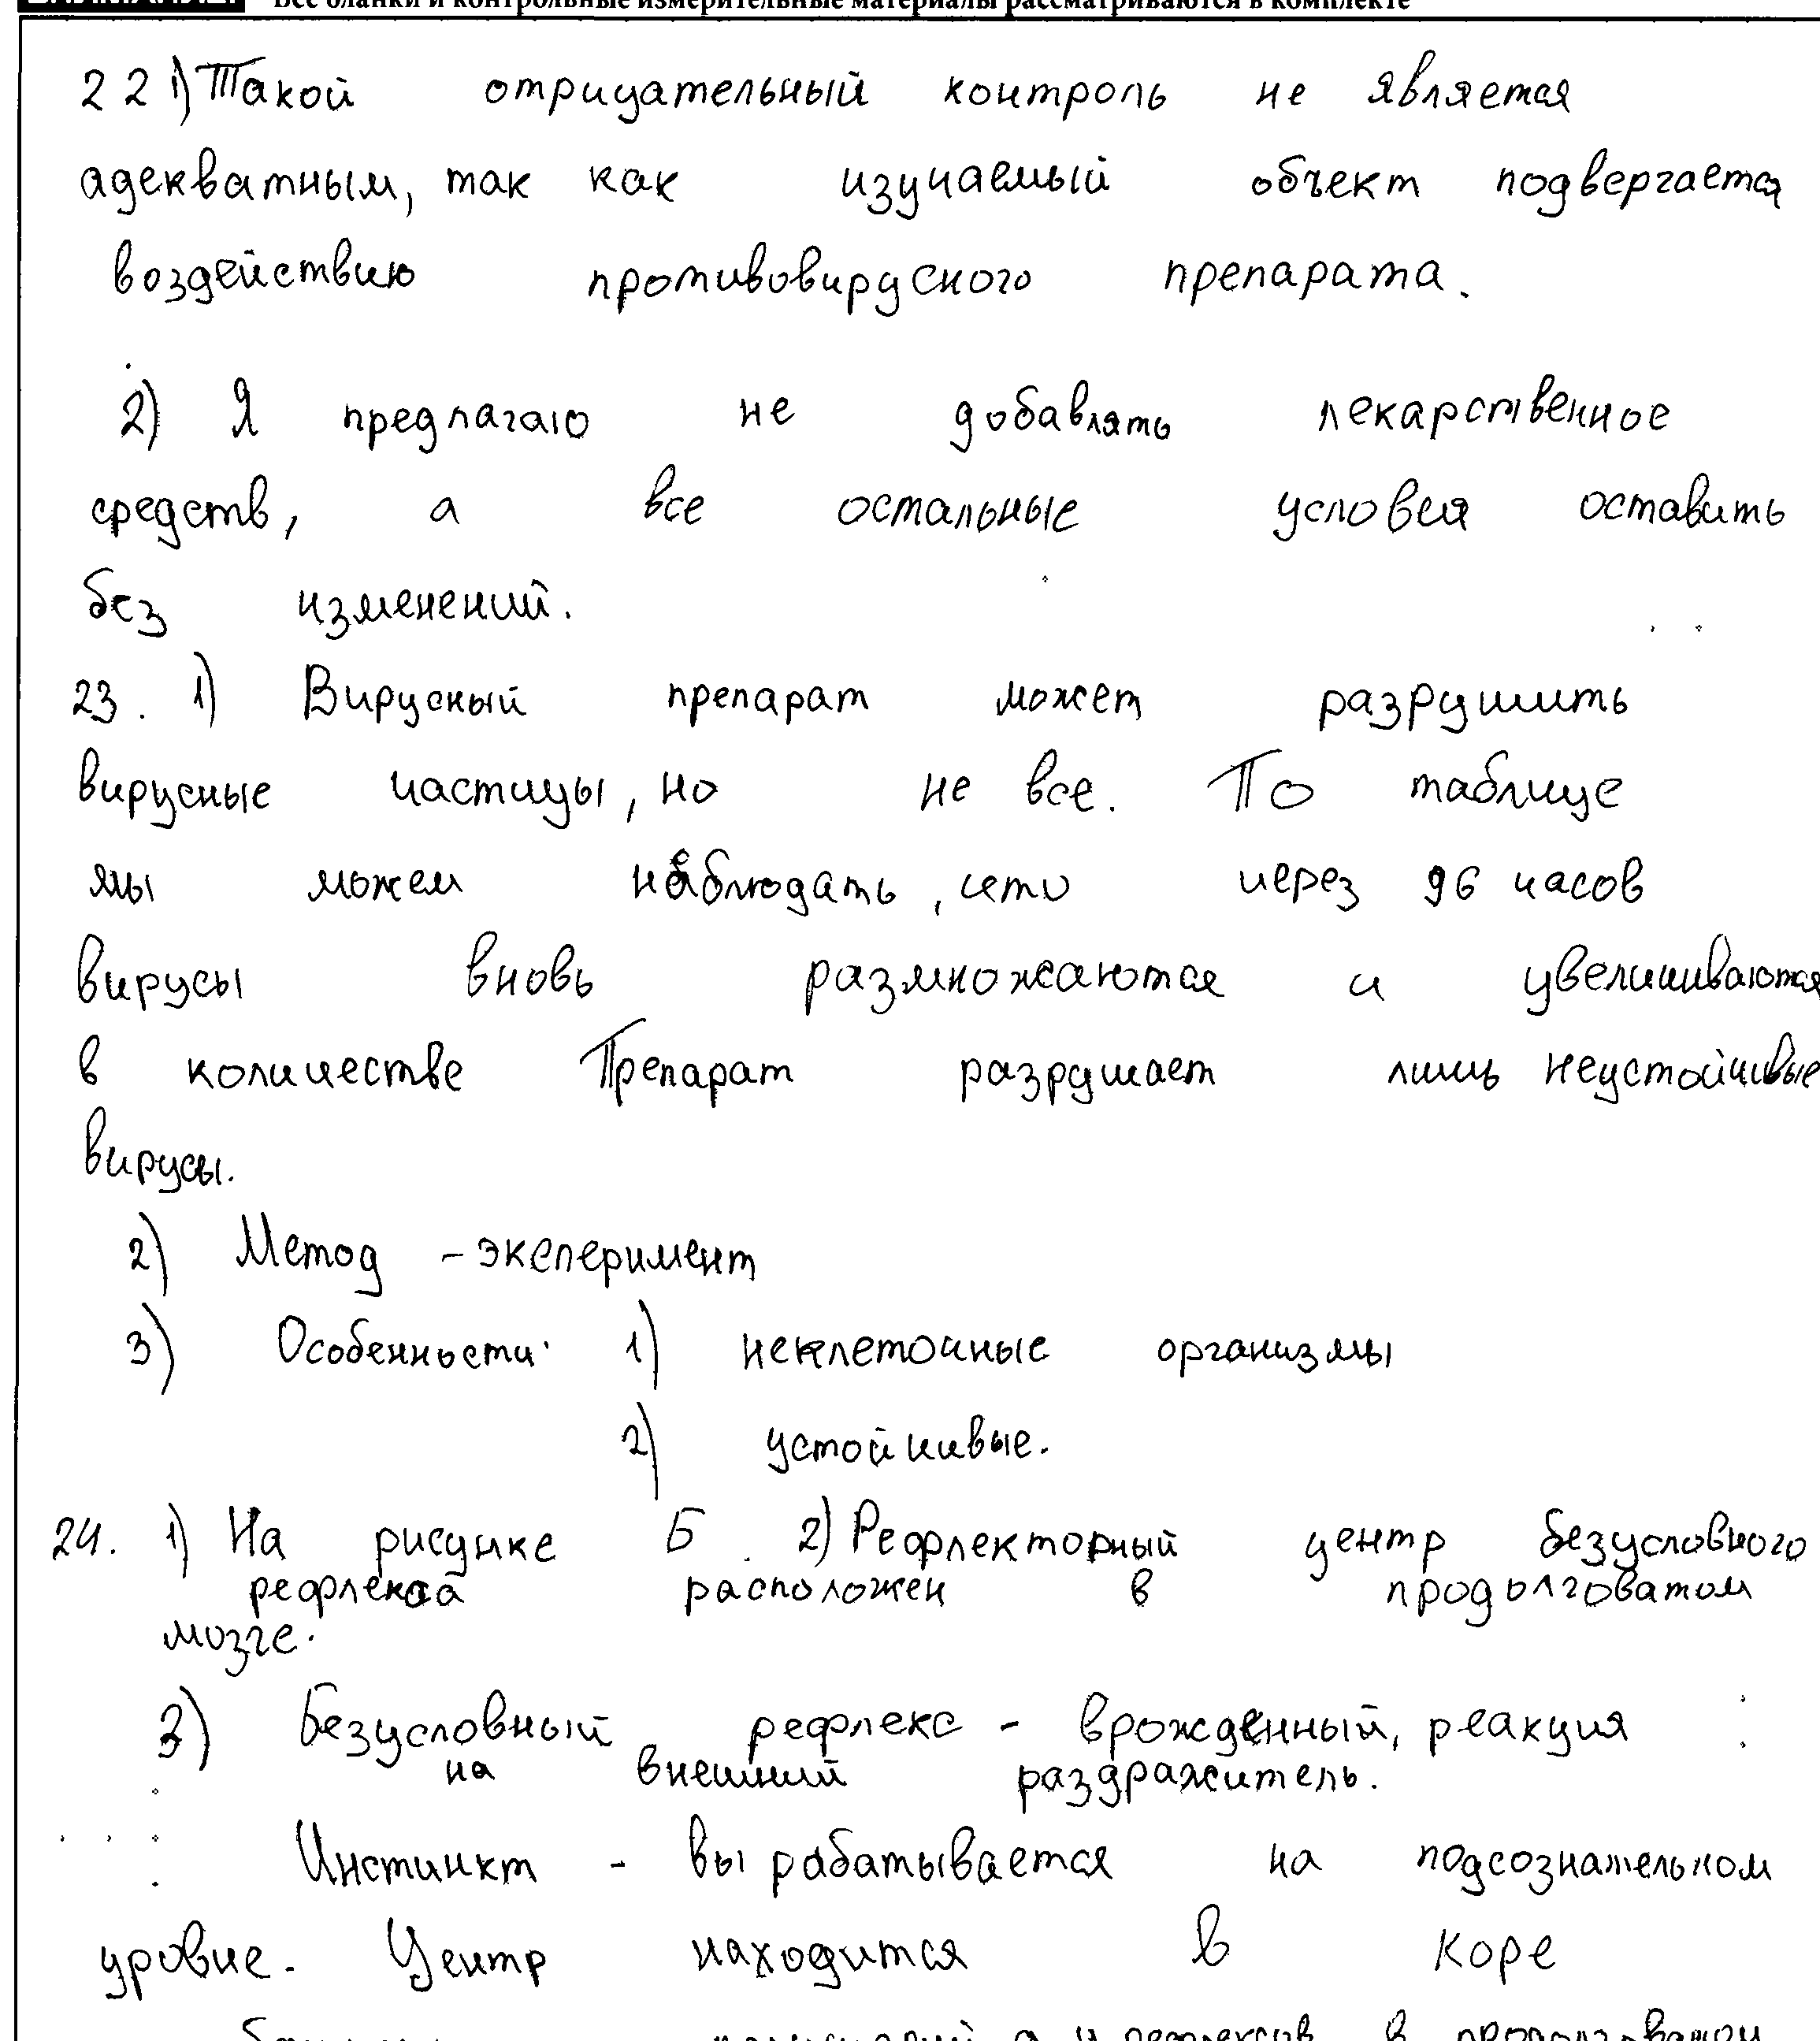 Все бланки и контрольные измерительные материалы рассматриваются в комплекте
22 1) Такой отрицательный контроль не является
адекватным, так как изучаемый объект подвергается
воздействию противовирусного препарата.
2) Я предлагаю не добавлять лекарственное
средств, а все остальные условия оставить
без изменений.
23. 1) Вирусный препарат может разрушить
вирусные частицы, но не все. По таблице
мы можем наблюдать, что через 96 часов
вирусы вновь размножаются и увеличиваются
в количестве Препарат разрушает лишь неустойчивые
вирусы.
2) Метод - эксперимент
3) Особенности: 1) неклеточные организмы
2) устойчивые.
24. 1) На рисунке Б. 2) Рефлекторный центр безусловного
рефлекса расположен в продолговатом
мозге.
3) Безусловный рефлекс - врожденный, реакция
на внешний раздражитель.
Инстинкт - вырабатывается на подсознательном
уровне. Центр находится в коре
рефлексов в